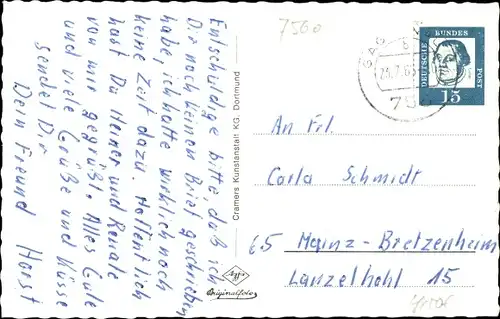 Entschuldige bitte, daß ich
Dir noch keinen Brief geschrieben
habe, ich hatte wirklich noch
keine Zeit dazu. Hoffentlich
hast Du Heiner und Renate
von mir gegrüßt. Alles Gute
und viele Grüße und Küsse
sendet Dir
Dein Freund Horst
Cramers Kunstanstalt KG, Dortmund
Agfa
Originalfoto
7560
DEUTSCHE BUNDESPOST
15
An Frl.
Carla Schmidt
65 Mainz-Bretzenheim
Lanzelhohl 15